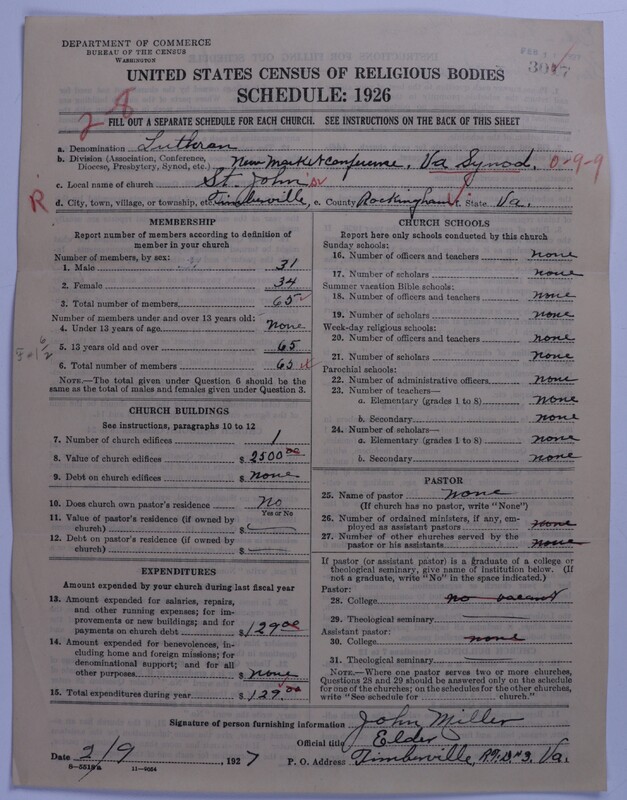 DEPARTMENT OF COMMERCE
BUREAU OF THE CENSUS
WASHINGTON
UNITED STATES CENSUS OF RELIGIOUS BODIES
SCHEDULE: 1926
28
FILL OUT A SEPARATE SCHEDULE FOR EACH CHURCH. SEE INSTRUCTIONS ON THE BACK OF THIS SHEET
a. Denomination Lutheran
b. Division (Association, Conference, Diocese, Presbytery, Synod, etc.) New Market Conference, Va Synod. 0-9-9
c. Local name of church St. John
R
d. City, town, village, or township, etc. Timberville, e. County Rockingham f. State Va.
MEMBERSHIP
Report number of members according to definition of
member in your church
Number of members, by sex:
1. Male 31
2. Female 34
3. Total number of members 65
Number of members under and over 13 years old:
4. Under 13 years of age none
5. 13 years old and over 65
6. Total number of members 65
NOTE.—The total given under Question 6 should be the
same as the total of males and females given under Question 3.
CHURCH BUILDINGS
See instructions, paragraphs 10 to 12
7. Number of church edifices 1
8. Value of church edifices $ 2500 00
9. Debt on church edifices $ none
10. Does church own pastor's residence No
Yes or No
11. Value of pastor's residence (if owned by
church) $
12. Debt on pastor's residence (if owned by
church) $
EXPENDITURES
Amount expended by your church during last fiscal year
13. Amount expended for salaries, repairs,
and other running expenses; for im-
provements or new buildings; and for
payments on church debt $ 129 00
14. Amount expended for benevolences, in-
cluding home and foreign missions; for
denominational support; and for all
other purposes $ none
15. Total expenditures during year $ 129.00
CHURCH SCHOOLS
Report here only schools conducted by this church
Sunday schools:
16. Number of officers and teachers none
17. Number of scholars none
Summer vacation Bible schools:
18. Number of officers and teachers none
19. Number of scholars none
Week-day religious schools:
20. Number of officers and teachers none
21. Number of scholars none
Parochial schools:
22. Number of administrative officers none
23. Number of teachers—
a. Elementary (grades 1 to 8) none
b. Secondary none
24. Number of scholars—
a. Elementary (grades 1 to 8) none
b. Secondary none
PASTOR
25. Name of pastor none
(If church has no pastor, write "None")
26. Number of ordained ministers, if any, em-
ployed as assistant pastors none
27. Number of other churches served by the
pastor or his assistants none
If pastor (or assistant pastor) is a graduate of a college or
theological seminary, give name of institution below. (If
not a graduate, write "No" in the space indicated.)
Pastor:
28. College no vacant
29. Theological seminary
Assistant pastor:
30. College none
31. Theological seminary
NOTE.—Where one pastor serves two or more churches,
Questions 28 and 29 should be answered only on the schedule
for one of the churches; on the schedules for the other churches,
write "See schedule for church."
Signature of person furnishing information John Miller
Official title Elder
Date 2/9, 1927 P. O. Address Timberville, R.F.D #3, Va.
11-9054